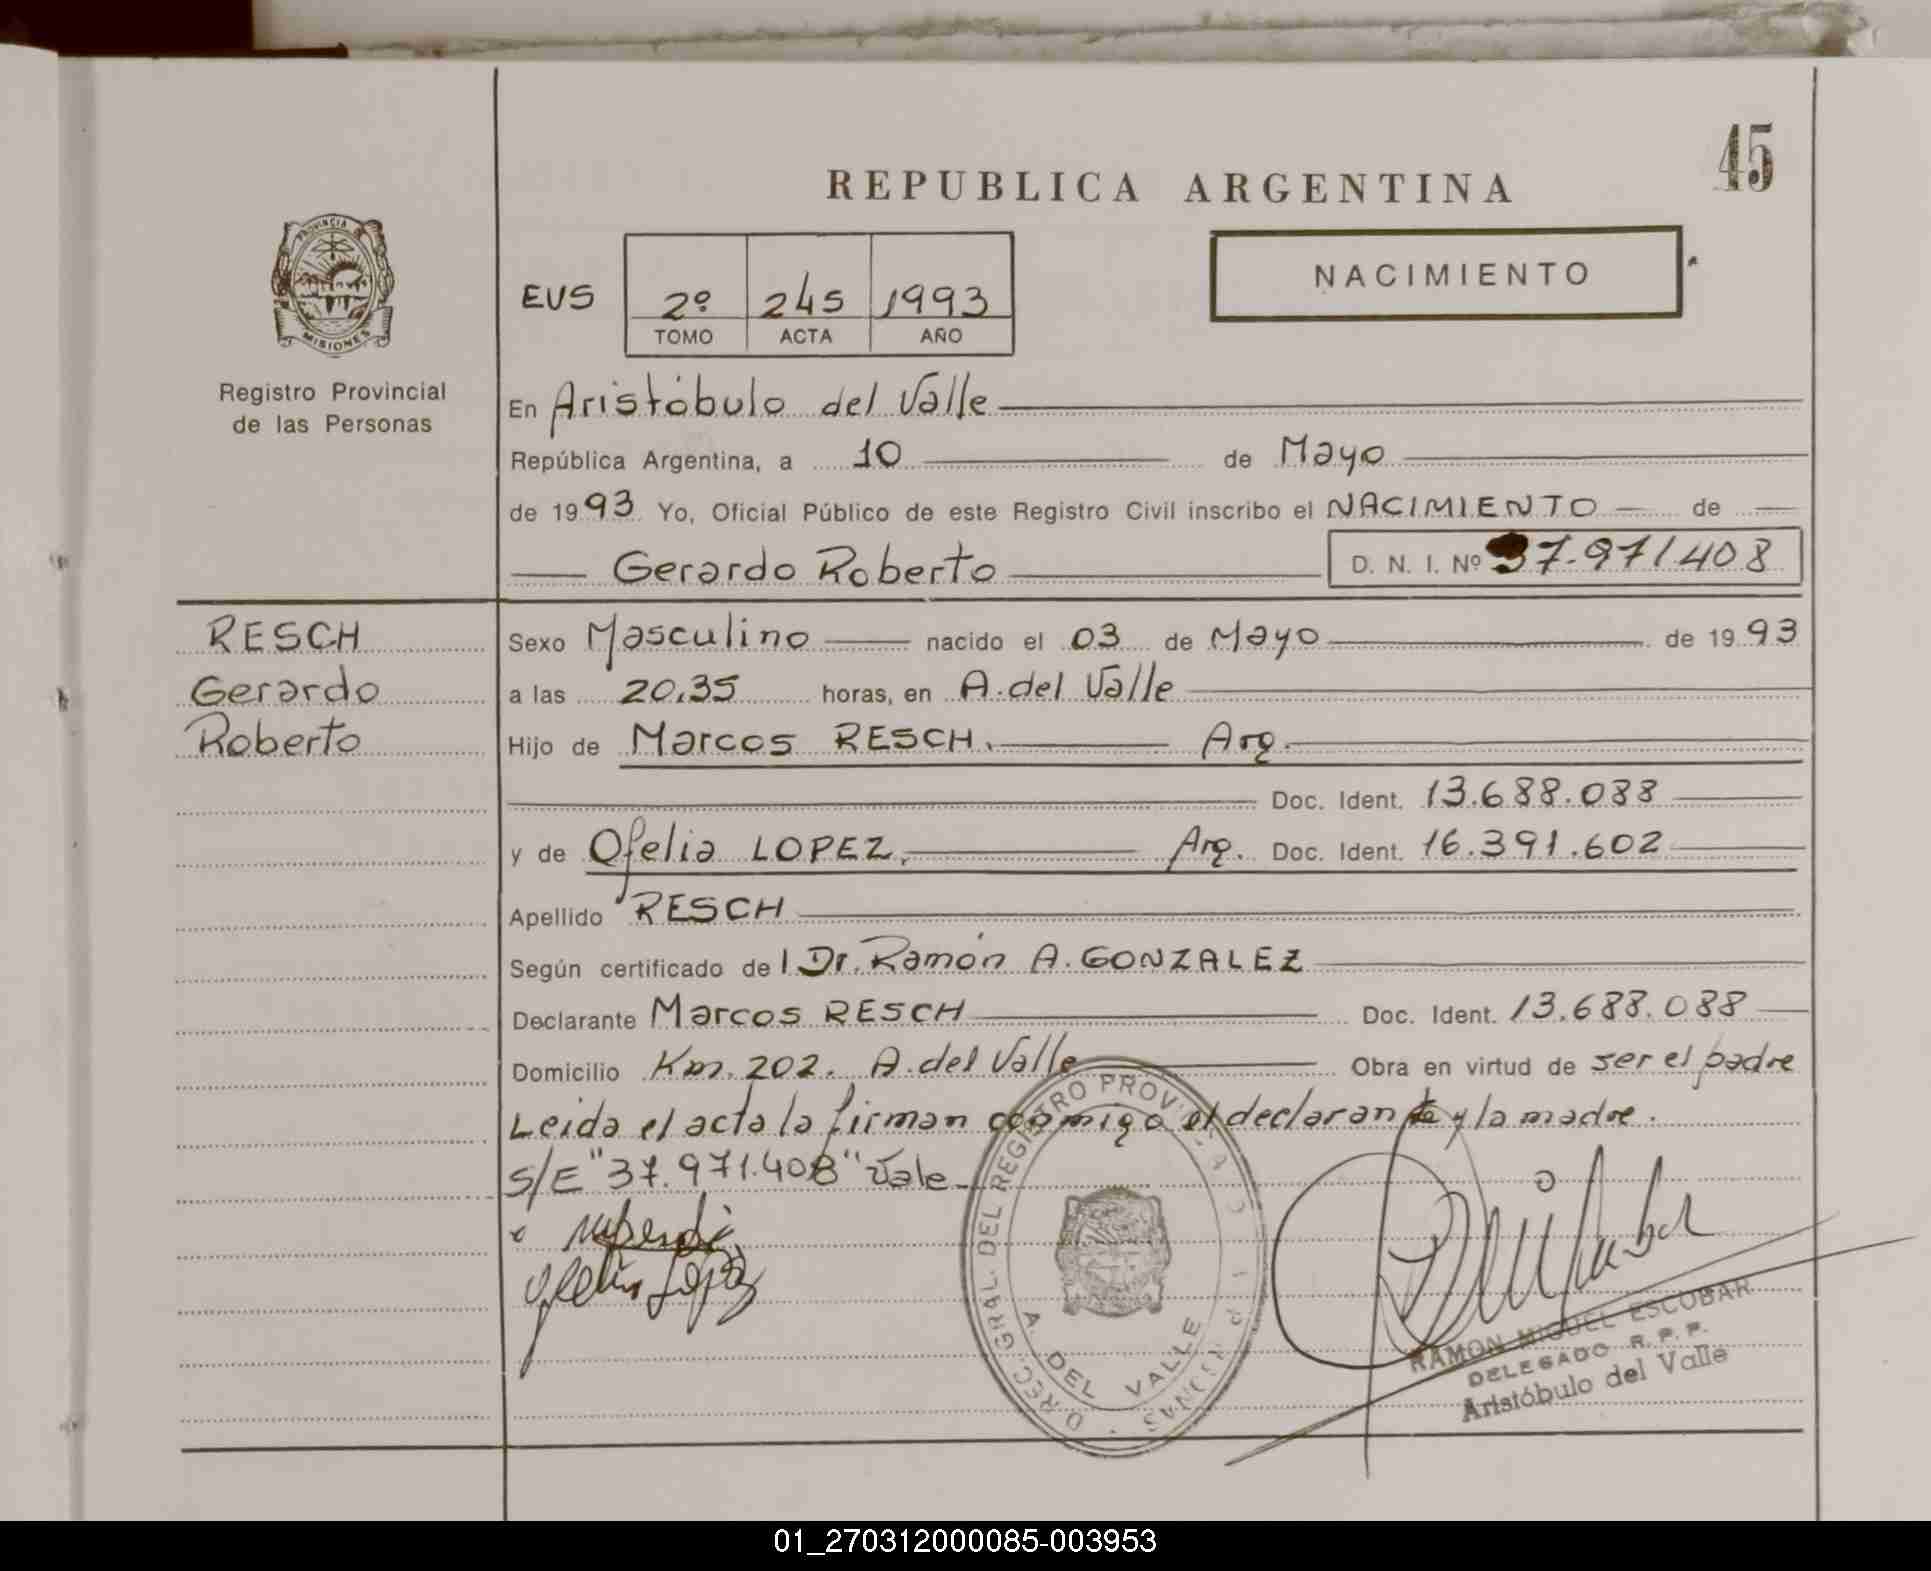 45
REPUBLICA ARGENTINA
PROVINCIA DE
MISIONES
Registro Provincial
de las Personas
NACIMIENTO
EUS 2º 245 1993
TOMO ACTA AÑO
En Aristóbulo del Valle
República Argentina, a 10 de Mayo
de 1993 Yo, Oficial Público de este Registro Civil inscribo el NACIMIENTO de
Gerardo Roberto D. N. I. Nº 37.971408
RESCH
Gerardo
Roberto
Sexo Masculino nacido el 03 de Mayo de 1993
a las 20.35 horas, en A. del Valle
Hijo de Marcos RESCH. Arg.
Doc. Ident. 13.688.088
y de Ofelia LOPEZ, Arg. Doc. Ident. 16.391.602
Apellido RESCH
Según certificado del Dr. Ramón A. GONZALEZ
Declarante Marcos RESCH Doc. Ident. 13.688.088
Domicilio Km. 202. A. del Valle Obra en virtud de ser el padre
Leida el acta la firman conmigo el declarante y la madre.
S/E "37.971.408" Vale
Ofelia Lopez
DIREC. GRAL. DEL REGISTRO PROVINCIAL
A. DEL VALLE
MISIONES
RAMON MIGUEL ESCOBAR
DELEGADO R. P. P.
Aristóbulo del Valle
01_270312000085-003953